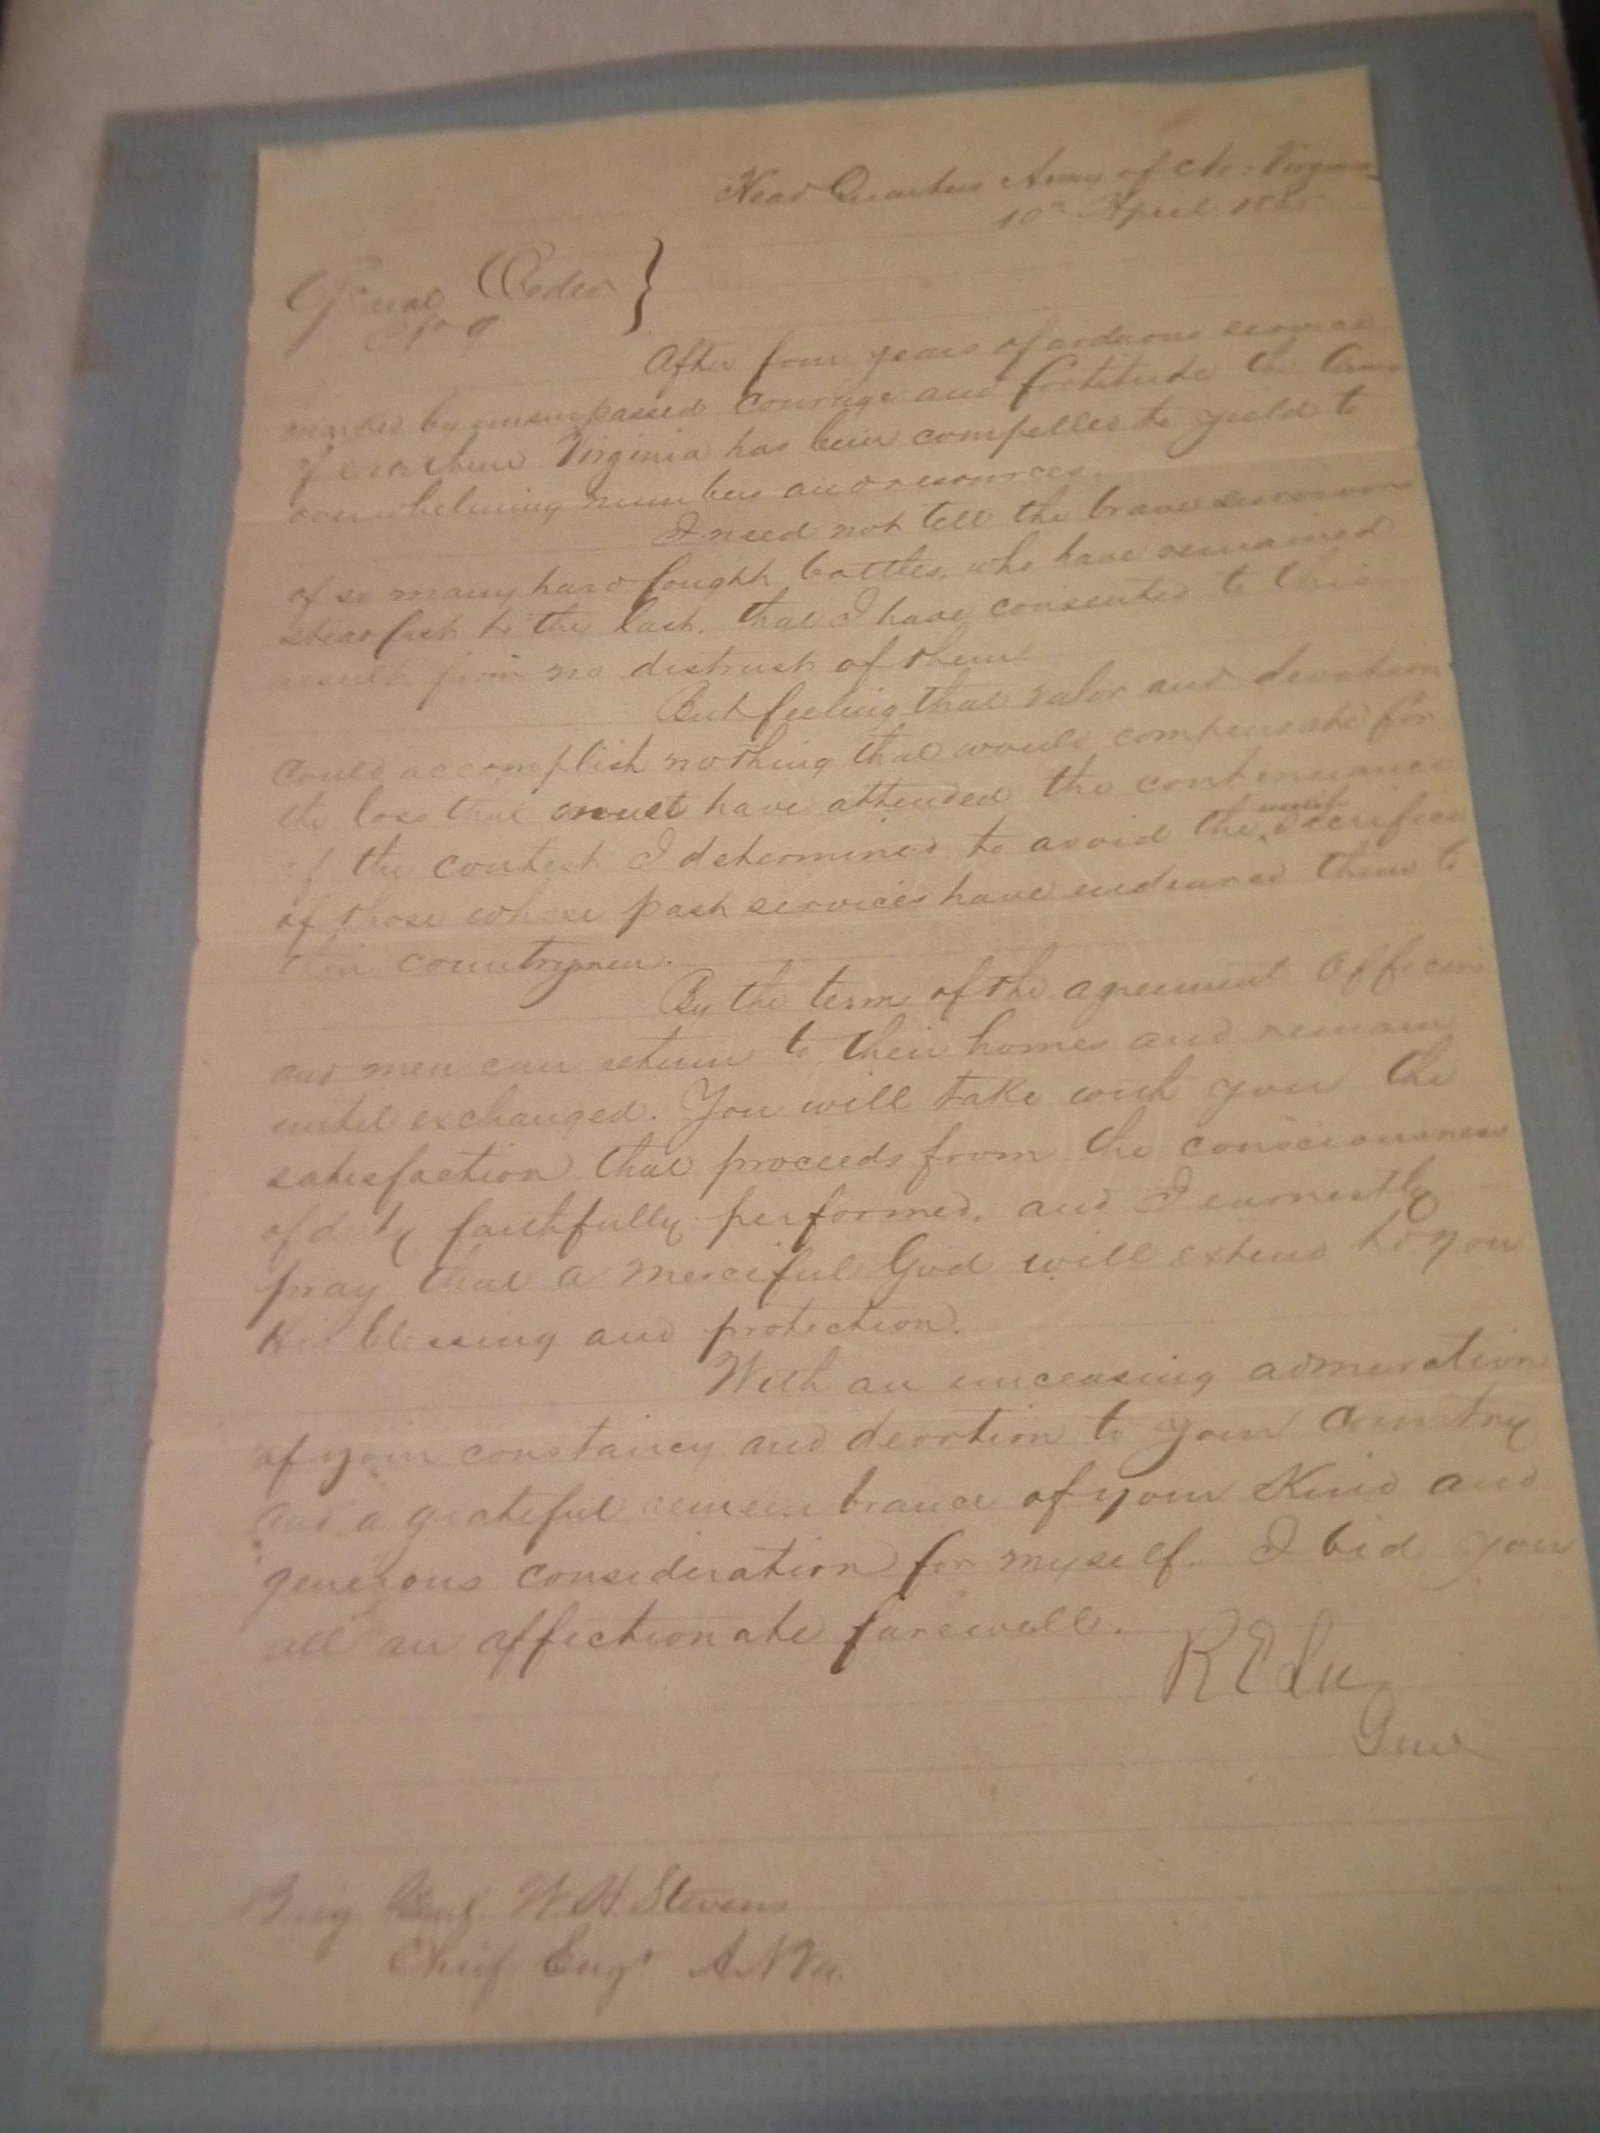 Head Quarters Army of No. Virginia
10th April 1865
General Order }
No 9
After four years of arduous service
marked by unsurpassed courage and fortitude the Army
of Northern Virginia has been compelled to yield to
overwhelming numbers and resources.
I need not tell the brave survivors
of so many hard fought battles, who have remained
steadfast to the last, that I have consented to this
result from no distrust of them.
But feeling that valor and devotion
could accomplish nothing that would compensate for
the loss that must have attended the continuance
of the contest I determined to avoid the sacrifice
of those whose past services have endeared them to
their countrymen.
By the terms of the agreement Officers
and men can return to their homes and remain
until exchanged. You will take with you the
satisfaction that proceeds from the consciousness
of duty faithfully performed, and I earnestly
pray that a Merciful God will extend to you
His blessing and protection.
With an unceasing admiration
of your constancy and devotion to your Country
and a grateful remembrance of your Kind and
generous consideration for myself. I bid you
all an affectionate farewell.
R E Lee
Genl
Brig Genl W. H. Stevens
Chief Engr A N Va.